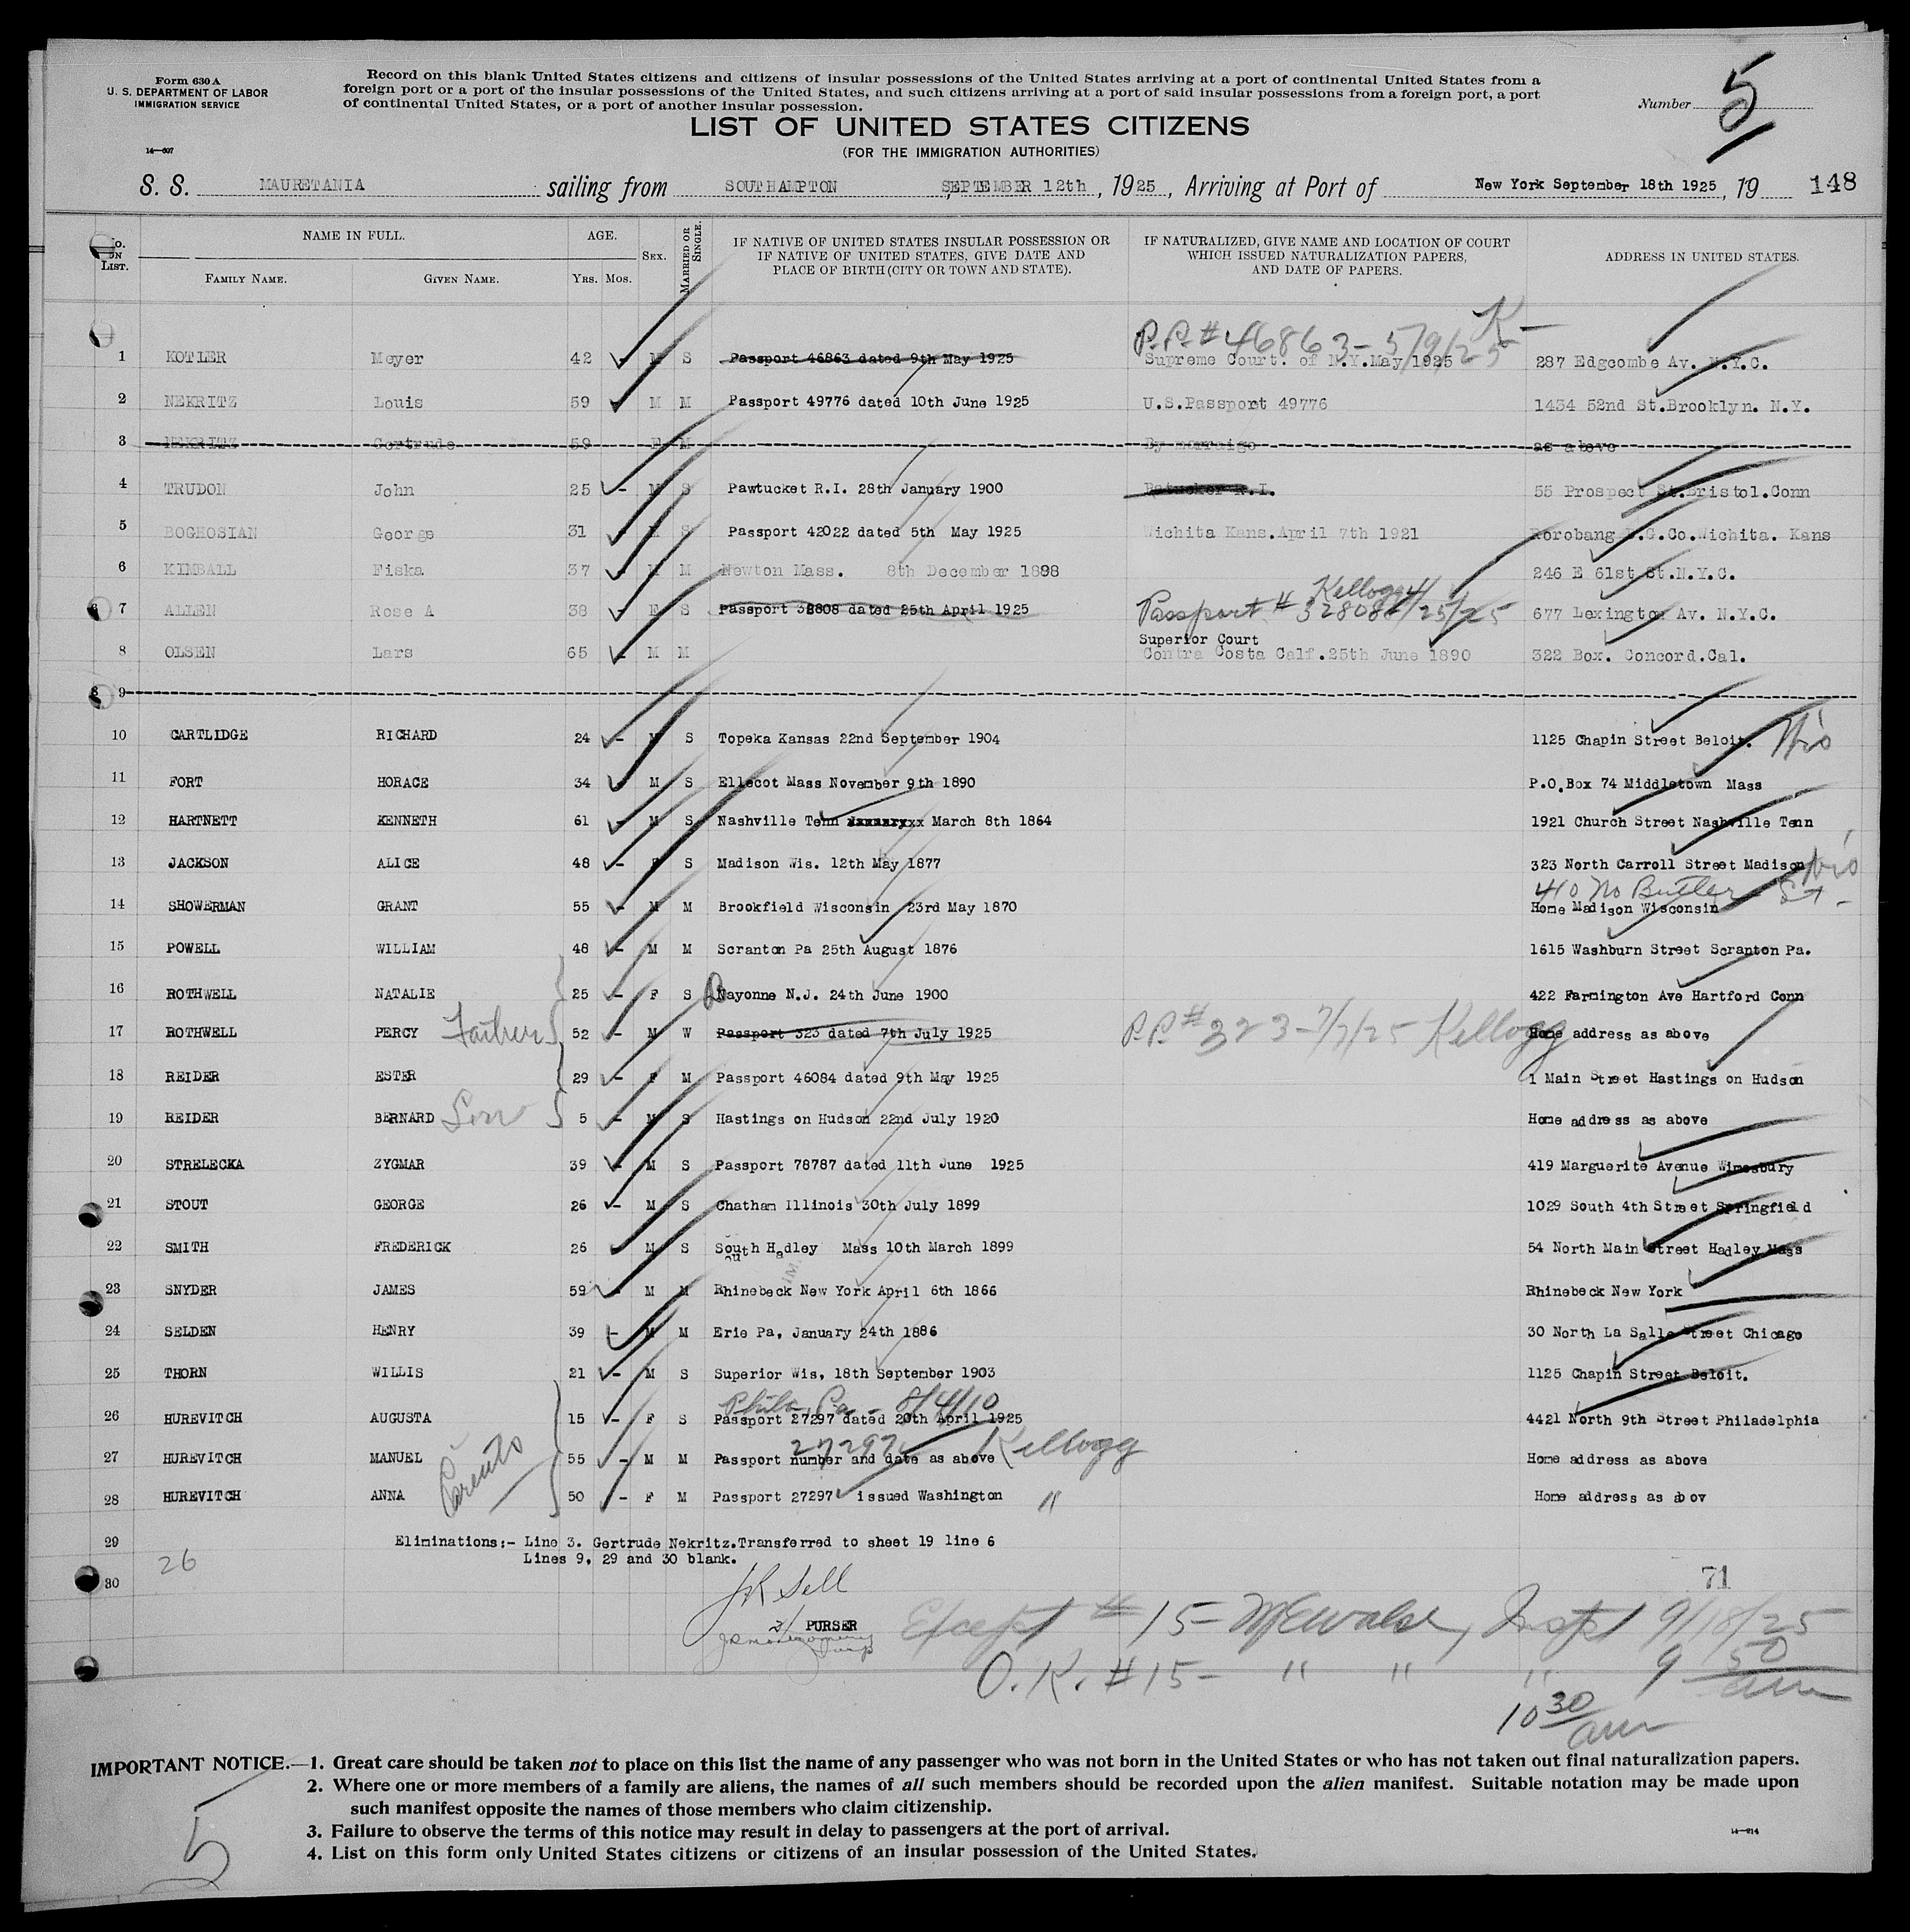 Form 630 A
U. S. DEPARTMENT OF LABOR
IMMIGRATION SERVICE
14—607
Record on this blank United States citizens and citizens of insular possessions of the United States arriving at a port of continental United States from a
foreign port or a port of the insular possessions of the United States, and such citizens arriving at a port of said insular possessions from a foreign port, a port
of continental United States, or a port of another insular possession.
Number 5
LIST OF UNITED STATES CITIZENS
(FOR THE IMMIGRATION AUTHORITIES)
S. S. MAURETANIA sailing from SOUTHAMPTON, SEPTEMBER 12th, 1925, Arriving at Port of New York September 18th 1925, 19 148
No. ON LIST. NAME IN FULL. FAMILY NAME. GIVEN NAME. AGE. YRS. MOS. SEX. MARRIED OR SINGLE. IF NATIVE OF UNITED STATES INSULAR POSSESSION OR IF NATIVE OF UNITED STATES, GIVE DATE AND PLACE OF BIRTH (CITY OR TOWN AND STATE). IF NATURALIZED, GIVE NAME AND LOCATION OF COURT WHICH ISSUED NATURALIZATION PAPERS, AND DATE OF PAPERS. ADDRESS IN UNITED STATES.
P.P. # 46863 - 5/9/25 K-
1 KOTLER Meyer 42 M S Passport 46863 dated 9th May 1925 Supreme Court. of N.Y.May 1925 287 Edgcombe Av. N.Y.C.
2 NEKRITZ Louis 59 M M Passport 49776 dated 10th June 1925 U.S.Passport 49776 1434 52nd St.Brooklyn. N.Y.
3 NEKRITZ Gertrude 59 F M By marraige as above
4 TRUDON John 25 - M S Pawtucket R.I. 28th January 1900 R.I. 55 Prospect St.Bristol.Conn
5 BOGHOSIAN George 31 - M S Passport 42022 dated 5th May 1925 Wichita Kans.April 7th 1921 Korobang D.G.Co.Wichita. Kans
6 KIMBALL Fiska 37 - M M Newton Mass. 8th December 1888 246 E 61st St.N.Y.C.
7 ALLEN Rose A 38 - F S Passport 32808 dated 25th April 1925 Passport # 32808 4/25/25 Kellogg 677 Lexington Av. N.Y.C.
8 OLSEN Lars 65 - M M Superior Court Contra Costa Calf.25th June 1890 322 Box. Concord.Cal.
9
10 CARTLIDGE RICHARD 24 - M S Topeka Kansas 22nd September 1904 1125 Chapin Street Beloit. Wis
11 FORT HORACE 34 - M S Ellecot Mass November 9th 1890 P.O.Box 74 Middletown Mass
12 HARTNETT KENNETH 61 - M S Nashville Tenn March 8th 1864 1921 Church Street Nashville Tenn
13 JACKSON ALICE 48 - F S Madison Wis. 12th May 1877 323 North Carroll Street Madison Wis
40 No Butler St -
14 SHOWERMAN GRANT 55 - M M Brookfield Wisconsin 23rd May 1870 Home Madison Wisconsin
15 POWELL WILLIAM 48 - M M Scranton Pa 25th August 1876 1615 Washburn Street Scranton Pa.
16 ROTHWELL NATALIE 25 - F S Bayonne N.J. 24th June 1900 422 Farmington Ave Hartford Conn
17 ROTHWELL PERCY Father 52 - M W Passport 323 dated 7th July 1925 P.P. # 323-7/7/25 Kellogg Home address as above
18 REIDER ESTER 29 - F M Passport 46084 dated 9th May 1925 1 Main Street Hastings on Hudson
19 REIDER BERNARD Son 5 - M S Hastings on Hudson 22nd July 1920 Home address as above
20 STRELECKA ZYGMAR 39 - M S Passport 78787 dated 11th June 1925 419 Marguerite Avenue Wimesbury
21 STOUT GEORGE 26 - M S Chatham Illinois 30th July 1899 1029 South 4th Street Springfield
22 SMITH FREDERICK 26 M S South Hadley Mass 10th March 1899 54 North Main Street Hadley Mass
23 SNYDER JAMES 59 - M M Rhinebeck New York April 6th 1866 Rhinebeck New York
24 SELDEN HENRY 39 - M M Erie Pa, January 24th 1886 30 North La Salle Street Chicago
25 THORN WILLIS 21 - M S Superior Wis, 18th September 1903 1125 Chapin Street Beloit.
Phila, Pa - 8/4/10
26 HUREVITCH AUGUSTA 15 - F S Passport 27297 dated 20th April 1925 4421 North 9th Street Philadelphia
27297 Kellogg
27 HUREVITCH MANUEL Parents 55 - M M Passport number and date as above Home address as above
28 HUREVITCH ANNA 50 - F M Passport 27297 issued Washington " Home address as abov
29 Eliminations:- Line 3. Gertrude Nekritz.Transferred to sheet 19 line 6
Lines 9, 29 and 30 blank.
26
30
71
PURSER
Except # 15 - Inspt 9/18/25
O.K. # 15 - " " " 9 50 am
10 30 am
IMPORTANT NOTICE.—1. Great care should be taken not to place on this list the name of any passenger who was not born in the United States or who has not taken out final naturalization papers.
2. Where one or more members of a family are aliens, the names of all such members should be recorded upon the alien manifest. Suitable notation may be made upon
such manifest opposite the names of those members who claim citizenship.
3. Failure to observe the terms of this notice may result in delay to passengers at the port of arrival.
4. List on this form only United States citizens or citizens of an insular possession of the United States.
14—614
5